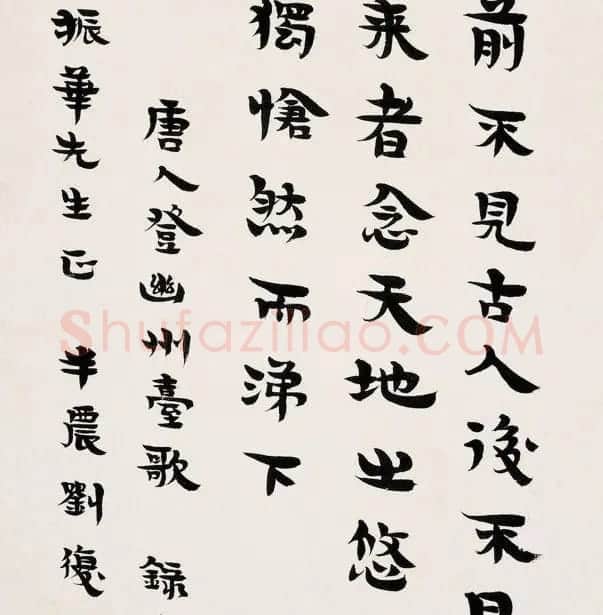 前不見古人後不見
来者念天地之悠
獨愴然而涕下
唐人登幽州臺歌 錄
振華先生正 半農劉復
Shufaziliao.COM